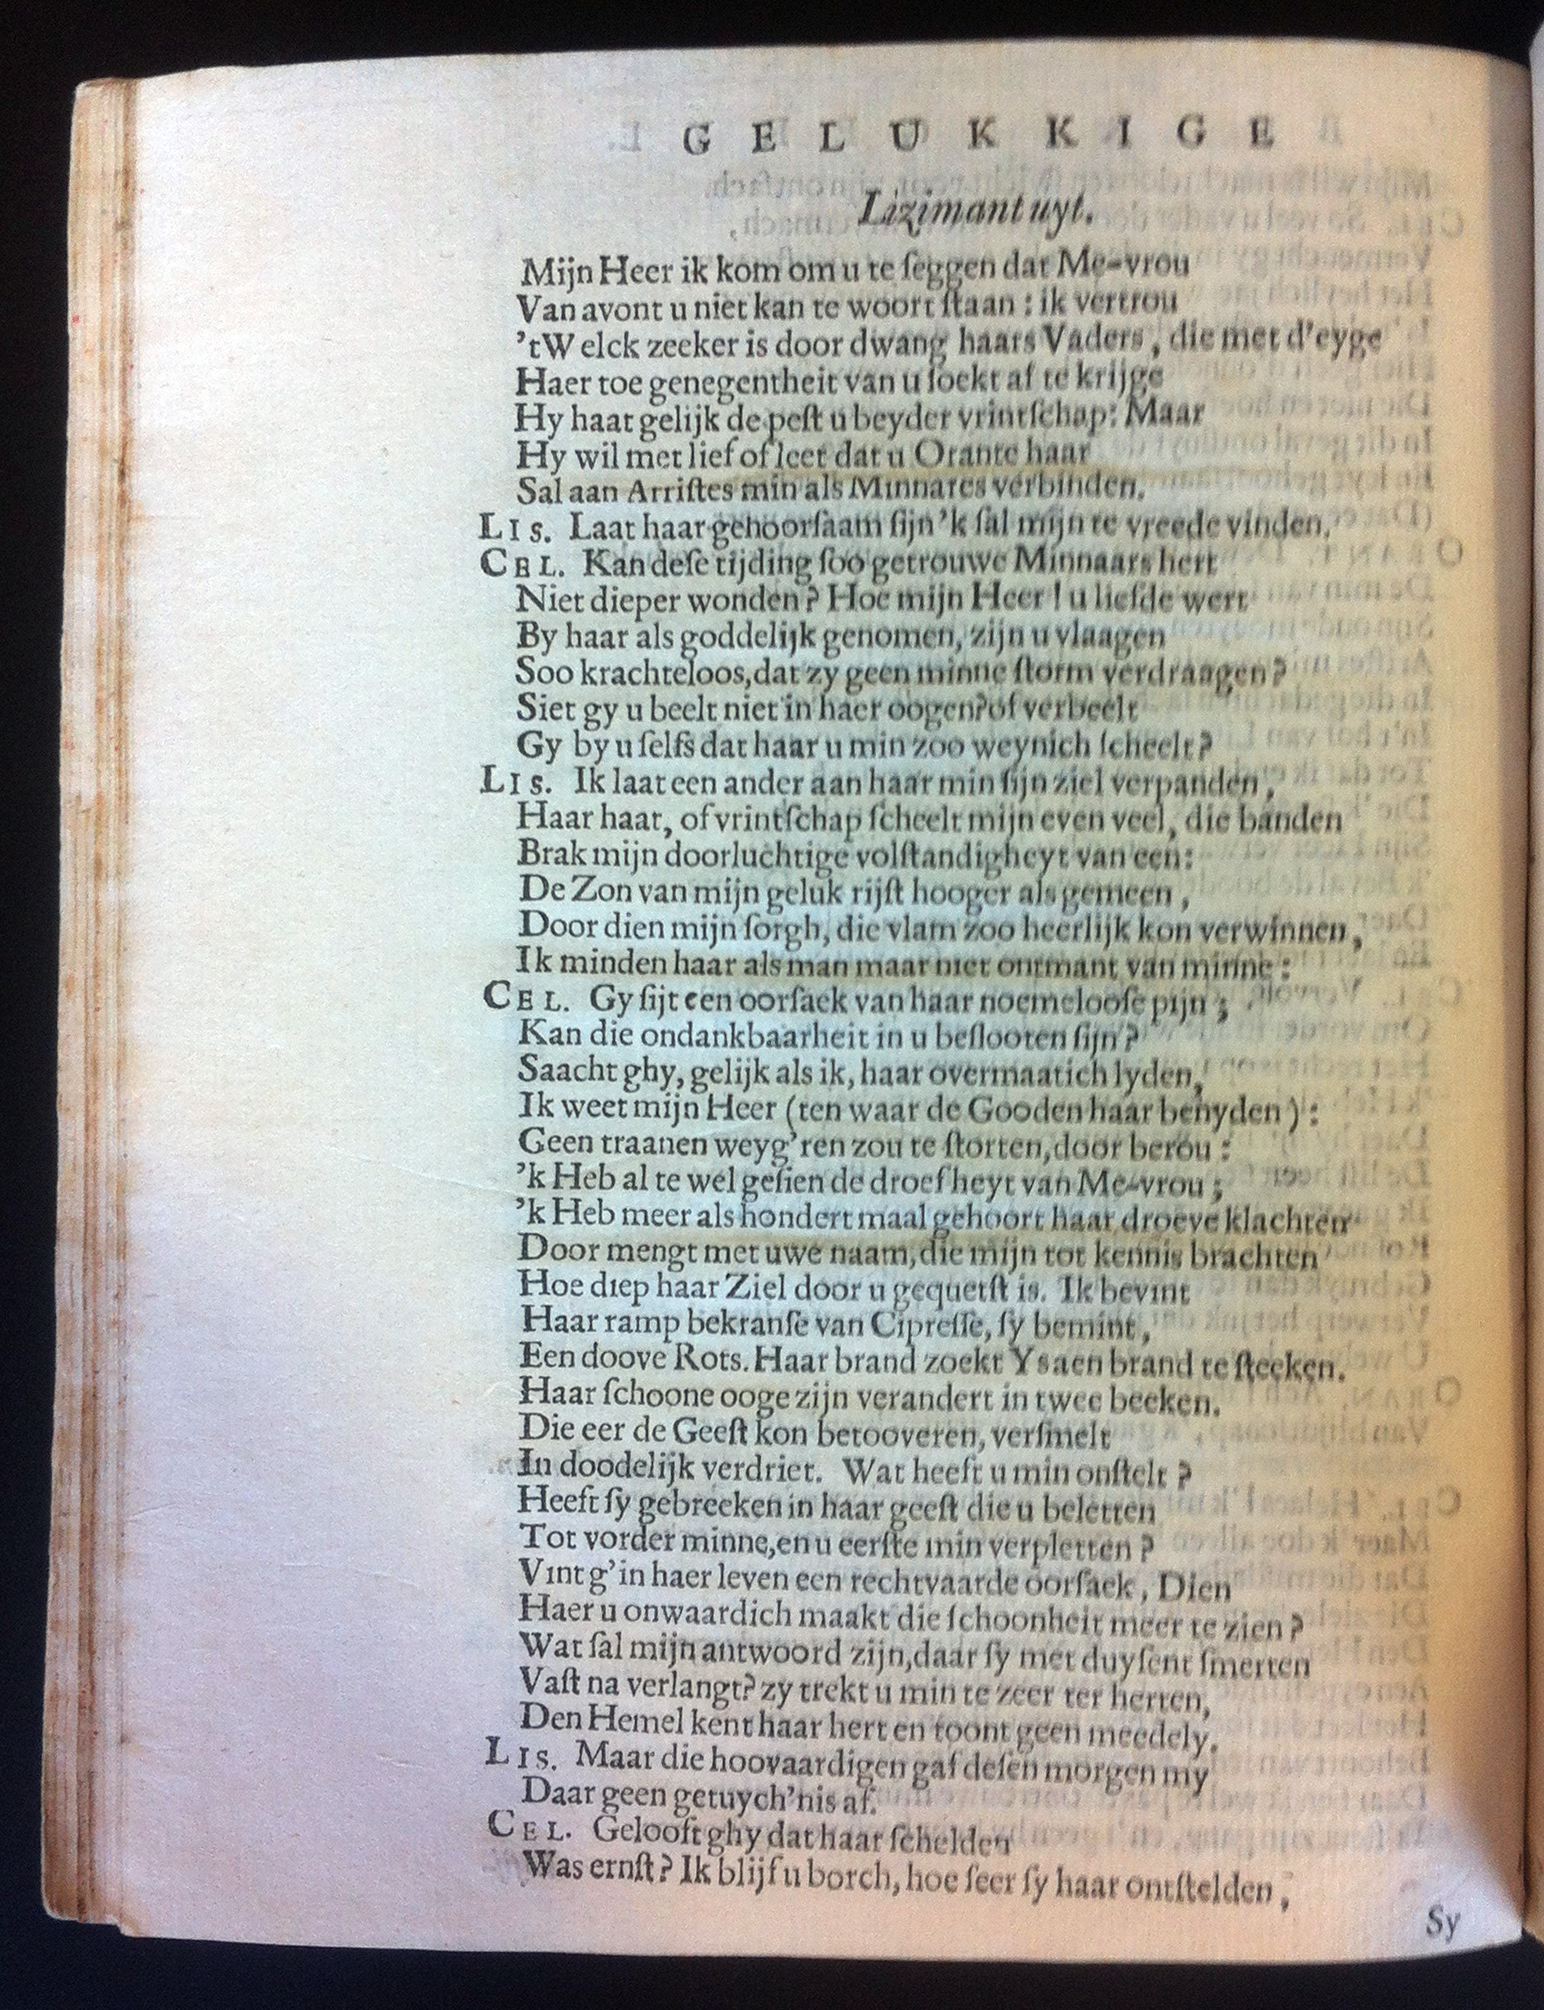 GELUKKIGE
Lizimant uyt.
Mijn Heer ik kom om u te ſeggen dat Me-vrou
Van avont u niet kan te woort ſtaan : ik vertrou
'tWelck zeeker is door dwang haars Vaders, die met d'eyge
Haer toe genegentheit van u ſoekt af te krijge
Hy haat gelijk de peſt u beyder vrintſchap: Maar
Hy wil met lief of leet dat u Orante haar
Sal aan Arriſtes min als Minnares verbinden.
LIS. Laat haar gehoorſaam ſijn 'k ſal mijn te vreede vinden.
CEL. Kan deſe tijding ſoo getrouwe Minnaars hert
Niet dieper wonden? Hoe mijn Heer ! u liefde wert
By haar als goddelijk genomen, zijn u vlaagen
Soo krachteloos, dat zy geen minne ſtorm verdraagen?
Siet gy u beelt niet in haer oogen? of verbeelt
Gy by u ſelfs dat haar u min zoo weynich ſcheelt?
LIS. Ik laat een ander aan haar min ſijn ziel verpanden,
Haar haat, of vrintſchap ſcheelt mijn even veel, die banden
Brak mijn doorluchtige volſtandigheyt van een:
De Zon van mijn geluk rijſt hooger als gemeen,
Door dien mijn ſorgh, die vlam zoo heerlijk kon verwinnen,
Ik minden haar als man maar niet ontmant van minne :
CEL. Gy ſijt een oorſaek van haar noemelooſe pijn ;
Kan die ondankbaarheit in u beſlooten ſijn?
Saacht ghy, gelijk als ik, haar overmaatich lyden,
Ik weet mijn Heer (ten waar de Gooden haar benyden) :
Geen traanen weyg'ren zou te ſtorten, door berou :
'k Heb al te wel geſien de droefheyt van Me-vrou ;
'k Heb meer als hondert maal gehoort haar droeve klachten
Door mengt met uwe naam, die mijn tot kennis brachten
Hoe diep haar Ziel door u gequetſt is. Ik bevint
Haar ramp bekranſe van Cipreſſe, ſy bemint,
Een doove Rots. Haar brand zoekt Ys aen brand te ſteeken.
Haar ſchoone ooge zijn verandert in twee beeken.
Die eer de Geeſt kon betooveren, verſmelt
In doodelijk verdriet. Wat heeft u min onſtelt ?
Heeft ſy gebreeken in haar geeſt die u beletten
Tot vorder minne, en u eerſte min verpletten ?
Vint g'in haer leven een rechtvaarde oorſaek, Dien
Haer u onwaardich maakt die ſchoonheit meer te zien ?
Wat ſal mijn antwoord zijn, daar ſy met duyſent ſmerten
Vaſt na verlangt? zy trekt u min te zeer ter herten,
Den Hemel kent haar hert en toont geen meedely.
LIS. Maar die hoovaardigen gaf deſen morgen my
Daar geen getuych'nis af.
CEL. Gelooft ghy dat haar ſchelden
Was ernſt? Ik blijf u borch, hoe ſeer ſy haar ontſtelden,
Sy